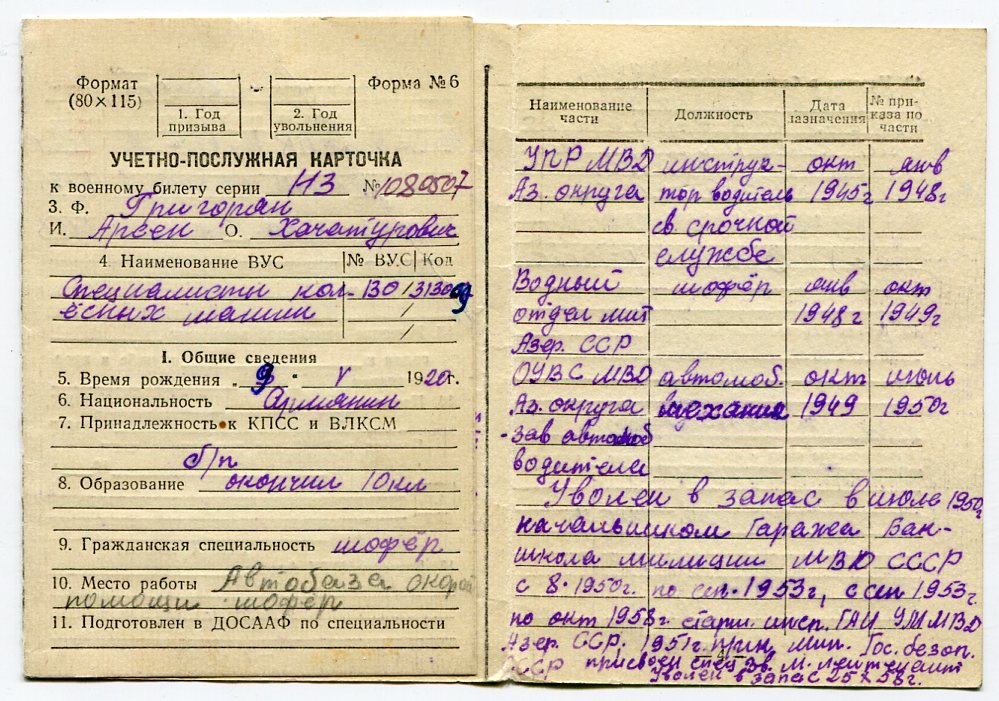 Формат
(80×115)
1. Год
призыва
2. Год
увольнения
Форма № 6
УЧЕТНО-ПОСЛУЖНАЯ КАРТОЧКА
к военному билету серии НЗ № 1080507
3. Ф. Григорян
И. Арсен О. Хачатурович
4. Наименование ВУС № ВУС Код
Специалисты кол- 130 / 3130
ёсных машин /
/
I. Общие сведения
5. Время рождения „ 9 " V 1920 г.
6. Национальность Армянин
7. Принадлежность к КПСС и ВЛКСМ
б/п
8. Образование окончил 10 кл
9. Гражданская специальность шофёр
10. Место работы Автобаза скорой
помощи шофёр
11. Подготовлен в ДОСААФ по специальности
Наименование части Должность Дата назначения № приказа по части
УПР МВД инструк- окт янв
Аз. округа тор водитель 1945 г 1948 г
св срочной
службе
Водный шофёр янв окт
отдел мил 1948 г 1949 г
Азер. ССР
ОУВС МВД автомоб. окт июль
Аз. округа механик 1949 1950 г
- зав автомоб
водители
Уволен в запас в июле 1950 г
начальником Гаража Бак-
школа милиции МВД СССР
с 8. 1950 г. по сен. 1953 г, с сен 1953 г.
по окт 1958 г старш. инсп. ГАИ УМ МВД
Азер. ССР, 1951 г. Мин. Гос. безоп.
СССР присвоен спец зв. м. лейтенант
-4-
Уволен в запас 25 X 58 г.